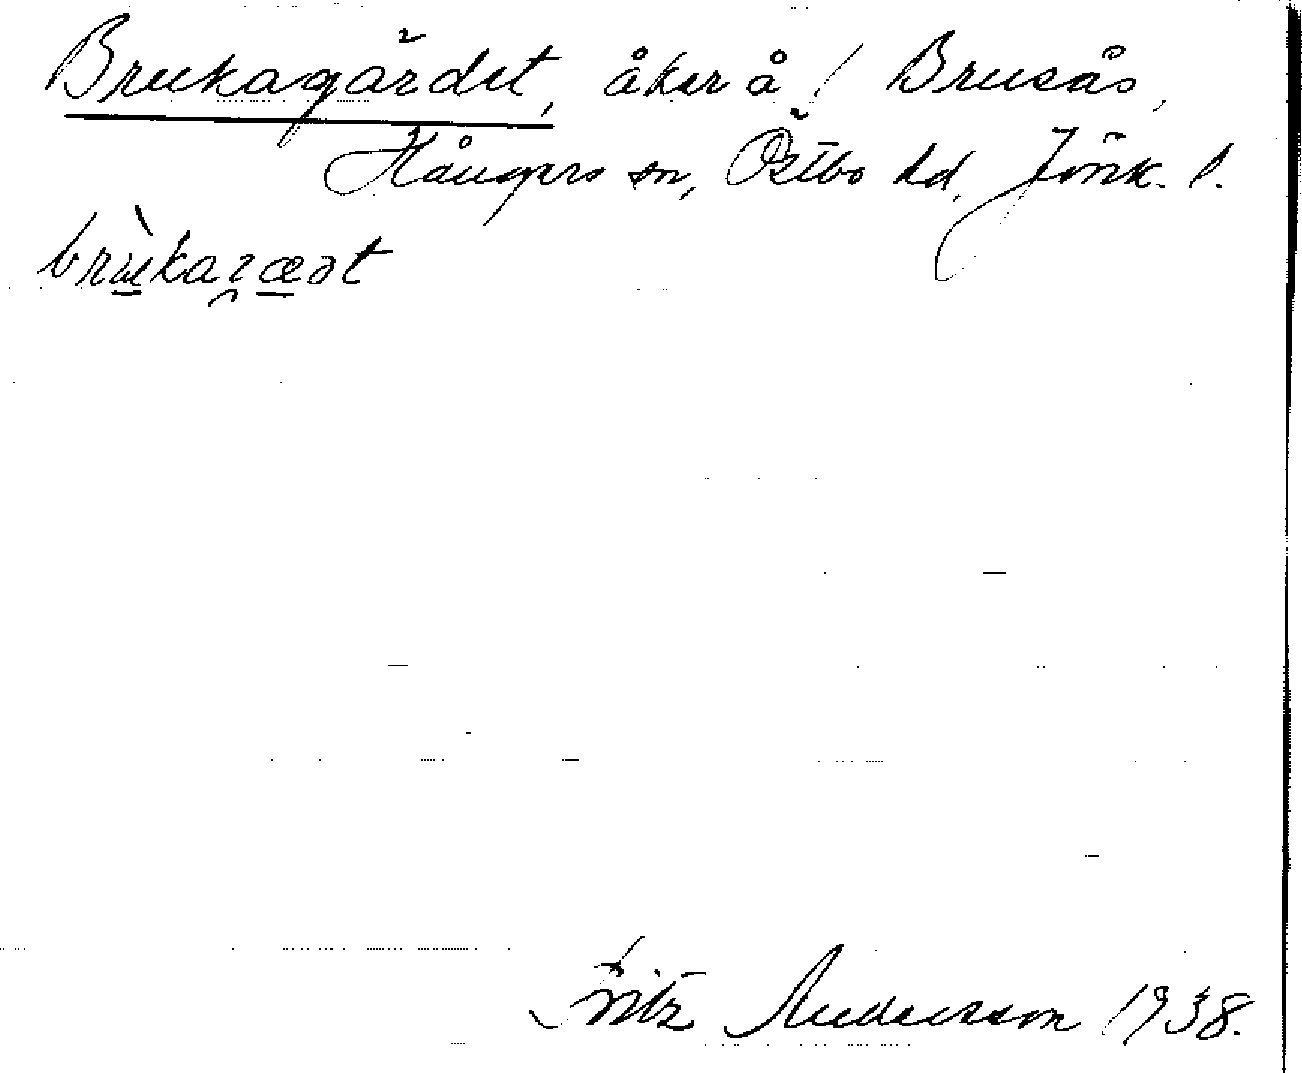 Brukagärdet, åker å / Brusås,
Hångers sn, Östbo hd, Jönk. l.
Fritz Andersson 1938.